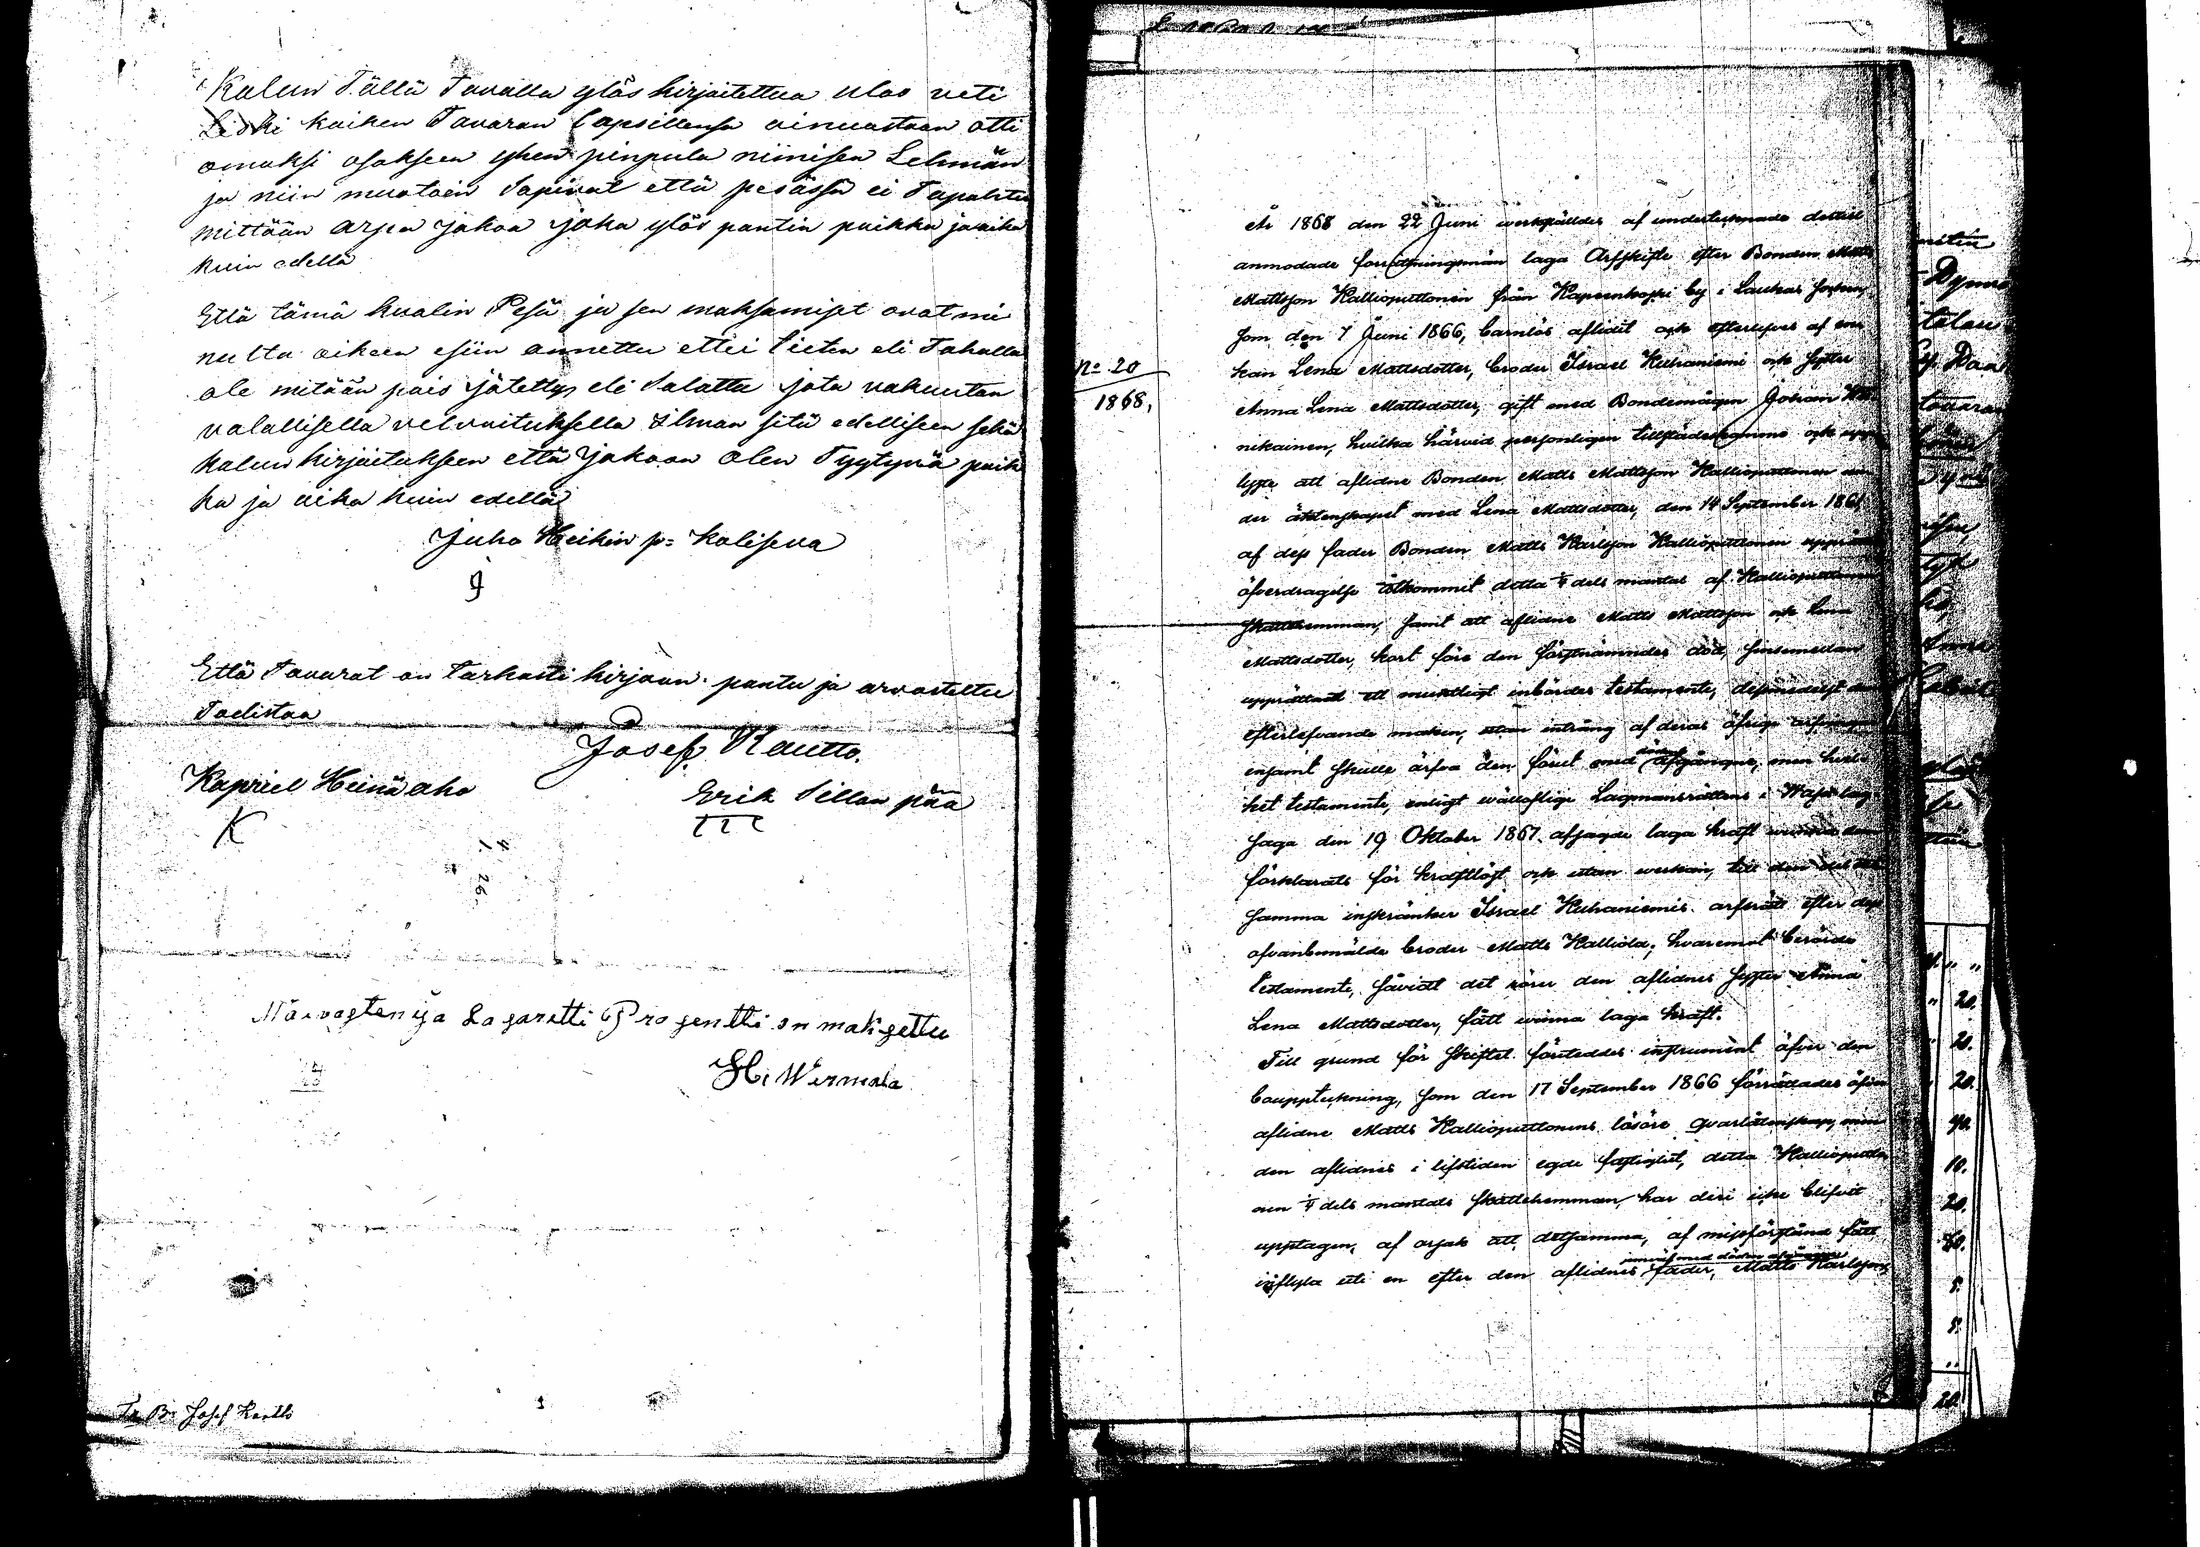 Kalun Tällä Tavalla ylös kirjoitettua ulos veti
Leski kaiken Tavaran lapsillensa ainuastaan otti
omaksi osakseen yhen pinpula niinisen Lehmän
ja niin muutoin Sopivat että pesässä ei Tapahtu
mittään arpa jakoa joka ylös pantin paikka ja aika
kuin edellä
Että tämä kualin Pesä ja sen maksamiset ovat mi
nulta oikeen esiin annettu ettei tieten eli Tahalla
ole mitään pois jätetty eli Salattu jota vakuutan
valallisella velvoituksella Ilman sitä edelliseen sekä
kalun kirjoitukseen että Jakoon Olen Tyytyvä paik
ka ja aika kuin edellä
Juho Heikin p= Koliseva
Että Tavarat on tarkasti kirjaan pantu ja arvosteltu
Todistaa
Josef Rautto.
Kapriel Heinä aho
K
Erik Sillan pää
4
1. 26.
Näivaasten ja Lasaretti Prosentti on maksettu
H. Wermala
Tr. Br Josef Rautto
No 20
1868,
År 1868 den 22 Juni werkställdes af undertecknade dertill
anmodade förrättningsmän laga Arfskifte efter Bonden Matts
Mattsson Kallioputtonen från Kapeenkoski by i Laukas socken,
som den 7 Juni 1866, barnlös aflidit och efterlefves af en
kan Lena Mattsdotter, broder Israel Kuhaniemi och syster
Anna Lena Mattsdotter, gift med Bondemågen Johan
nikainen, hvilka härvid personligen tillstädeskommo och upp
lyste att aflidne Bonden Matts Mattsson Kallioputtonen un
der äktenskapet med Lena Mattsdotter, den 14 September 1861
af dess fader Bonden Matts Karlsson Kallioputtonen
öfverdragelse åtkommit detta ¼ dels mantal af Kallioputtonen
skattehemman, samt att aflidne Matts Mattsson och Lena
Mattsdotter, kort före den förstnämndes död, sinsemedan
upprättadt ett muntligt inbördes testamente,
efterlefvande maken, utan intrång af deras öfrige
ensamt skulle ärfva den förut med döden afgångne, men hvil-
ket testamente, enligt wällofliga Lagmansrättens i Wasa lag
saga den 19 Oktober 1867 afsagda laga kraft
förklarats för kraftlöst och utan werkan, till den del det
samma inskränker Israel Kuhaniemis arfsrätt efter dess
ofvanbemälde broder Matts Kalliola, hvaremot berörde
testamente, såvidt det rörer den aflidnes syster Anna
Lena Mattsdotter, fått winna laga kraft.
Till grund för skiftet företeddes instrument öfver den
bouppteckning, som den 17 September 1866 förrättades öfver
aflidne Matts Kallioputtonens lösöre qvarlåtenskap, men
den aflidnes i lifstiden egde fastighet, detta Kallioputto
nen ¼ dels mantals skattehemman, har deri icke blifvit
upptagen, af orsak att detsamma, af missförstånd fått
jemväl med döden afgångne
inflyta uti en efter den aflidnes fader, Matts Karlsson
20.
20.
20.
40.
10.
20.
8.
8.
20